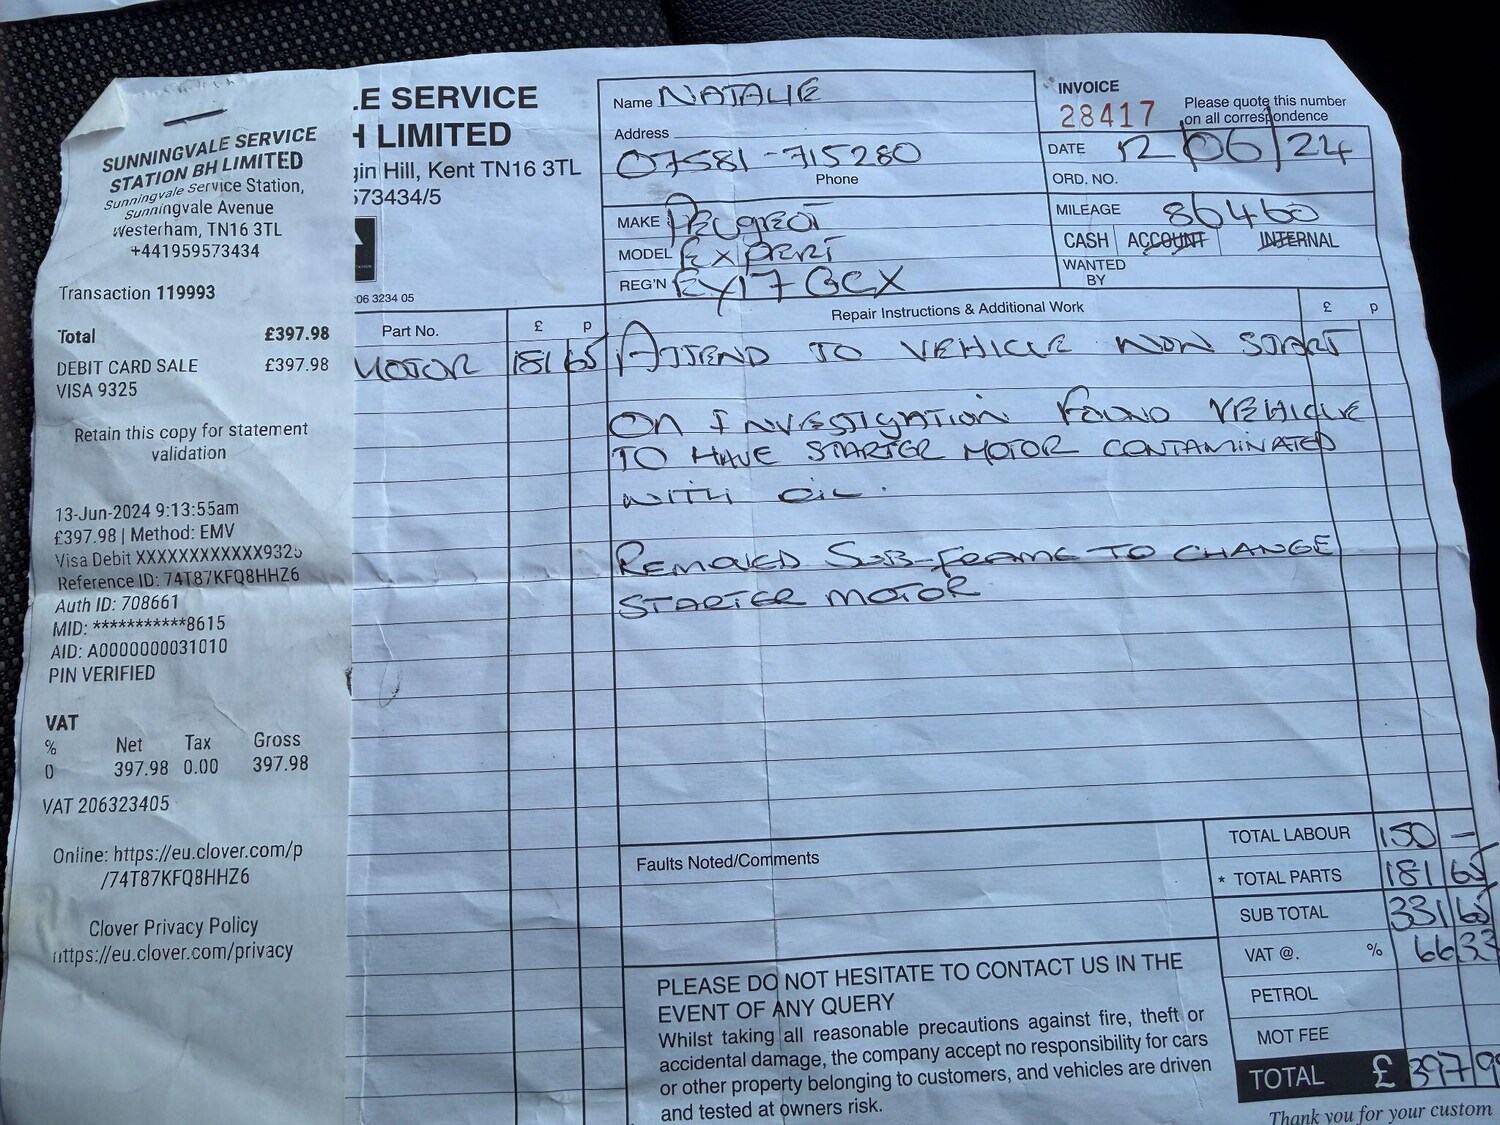 SUNNINGVALE SERVICE
STATION BH LIMITED
Sunningvale Service Station,
Sunningvale Avenue
Westerham, TN16 3TL
+441959573434
Transaction 119993
Total £397.98
DEBIT CARD SALE £397.98
VISA 9325
Retain this copy for statement
validation
13-Jun-2024 9:13:55am
£397.98 | Method: EMV
Visa Debit XXXXXXXXXXXX9325
Reference ID: 74T87KFQ8HHZ6
Auth ID: 708661
MID: ***********8615
AID: A0000000031010
PIN VERIFIED
VAT
% Net Tax Gross
0 397.98 0.00 397.98
VAT 206323405
Online: https://eu.clover.com/p
/74T87KFQ8HHZ6
Clover Privacy Policy
https://eu.clover.com/privacy
E SERVICE
H LIMITED
gin Hill, Kent TN16 3TL
573434/5
06 3234 05
Name NATALIE
Address
07581-715280
Phone
MAKE PEUGEOT
MODEL EXPERT
REG'N EY17 GCX
INVOICE
28417
Please quote this number
on all correspondence
DATE 12/06/24
ORD. NO.
MILEAGE 86460
CASH ACCOUNT INTERNAL
WANTED
BY
Part No. £ p
MOTOR 181 65
Repair Instructions & Additional Work £ p
ATTEND TO VEHICLE NON START
ON INVESTIGATION FOUND VEHICLE
TO HAVE STARTER MOTOR CONTAMINATED
WITH OIL.
REMOVED SUB-FRAME TO CHANGE
STARTER MOTOR
Faults Noted/Comments
TOTAL LABOUR 150 —
* TOTAL PARTS 181 65
SUB TOTAL 331 65
VAT @. % 66 33
PETROL
MOT FEE
TOTAL £ 397 9
PLEASE DO NOT HESITATE TO CONTACT US IN THE
EVENT OF ANY QUERY
Whilst taking all reasonable precautions against fire, theft or
accidental damage, the company accept no responsibility for cars
or other property belonging to customers, and vehicles are driven
and tested at owners risk.
Thank you for your custom